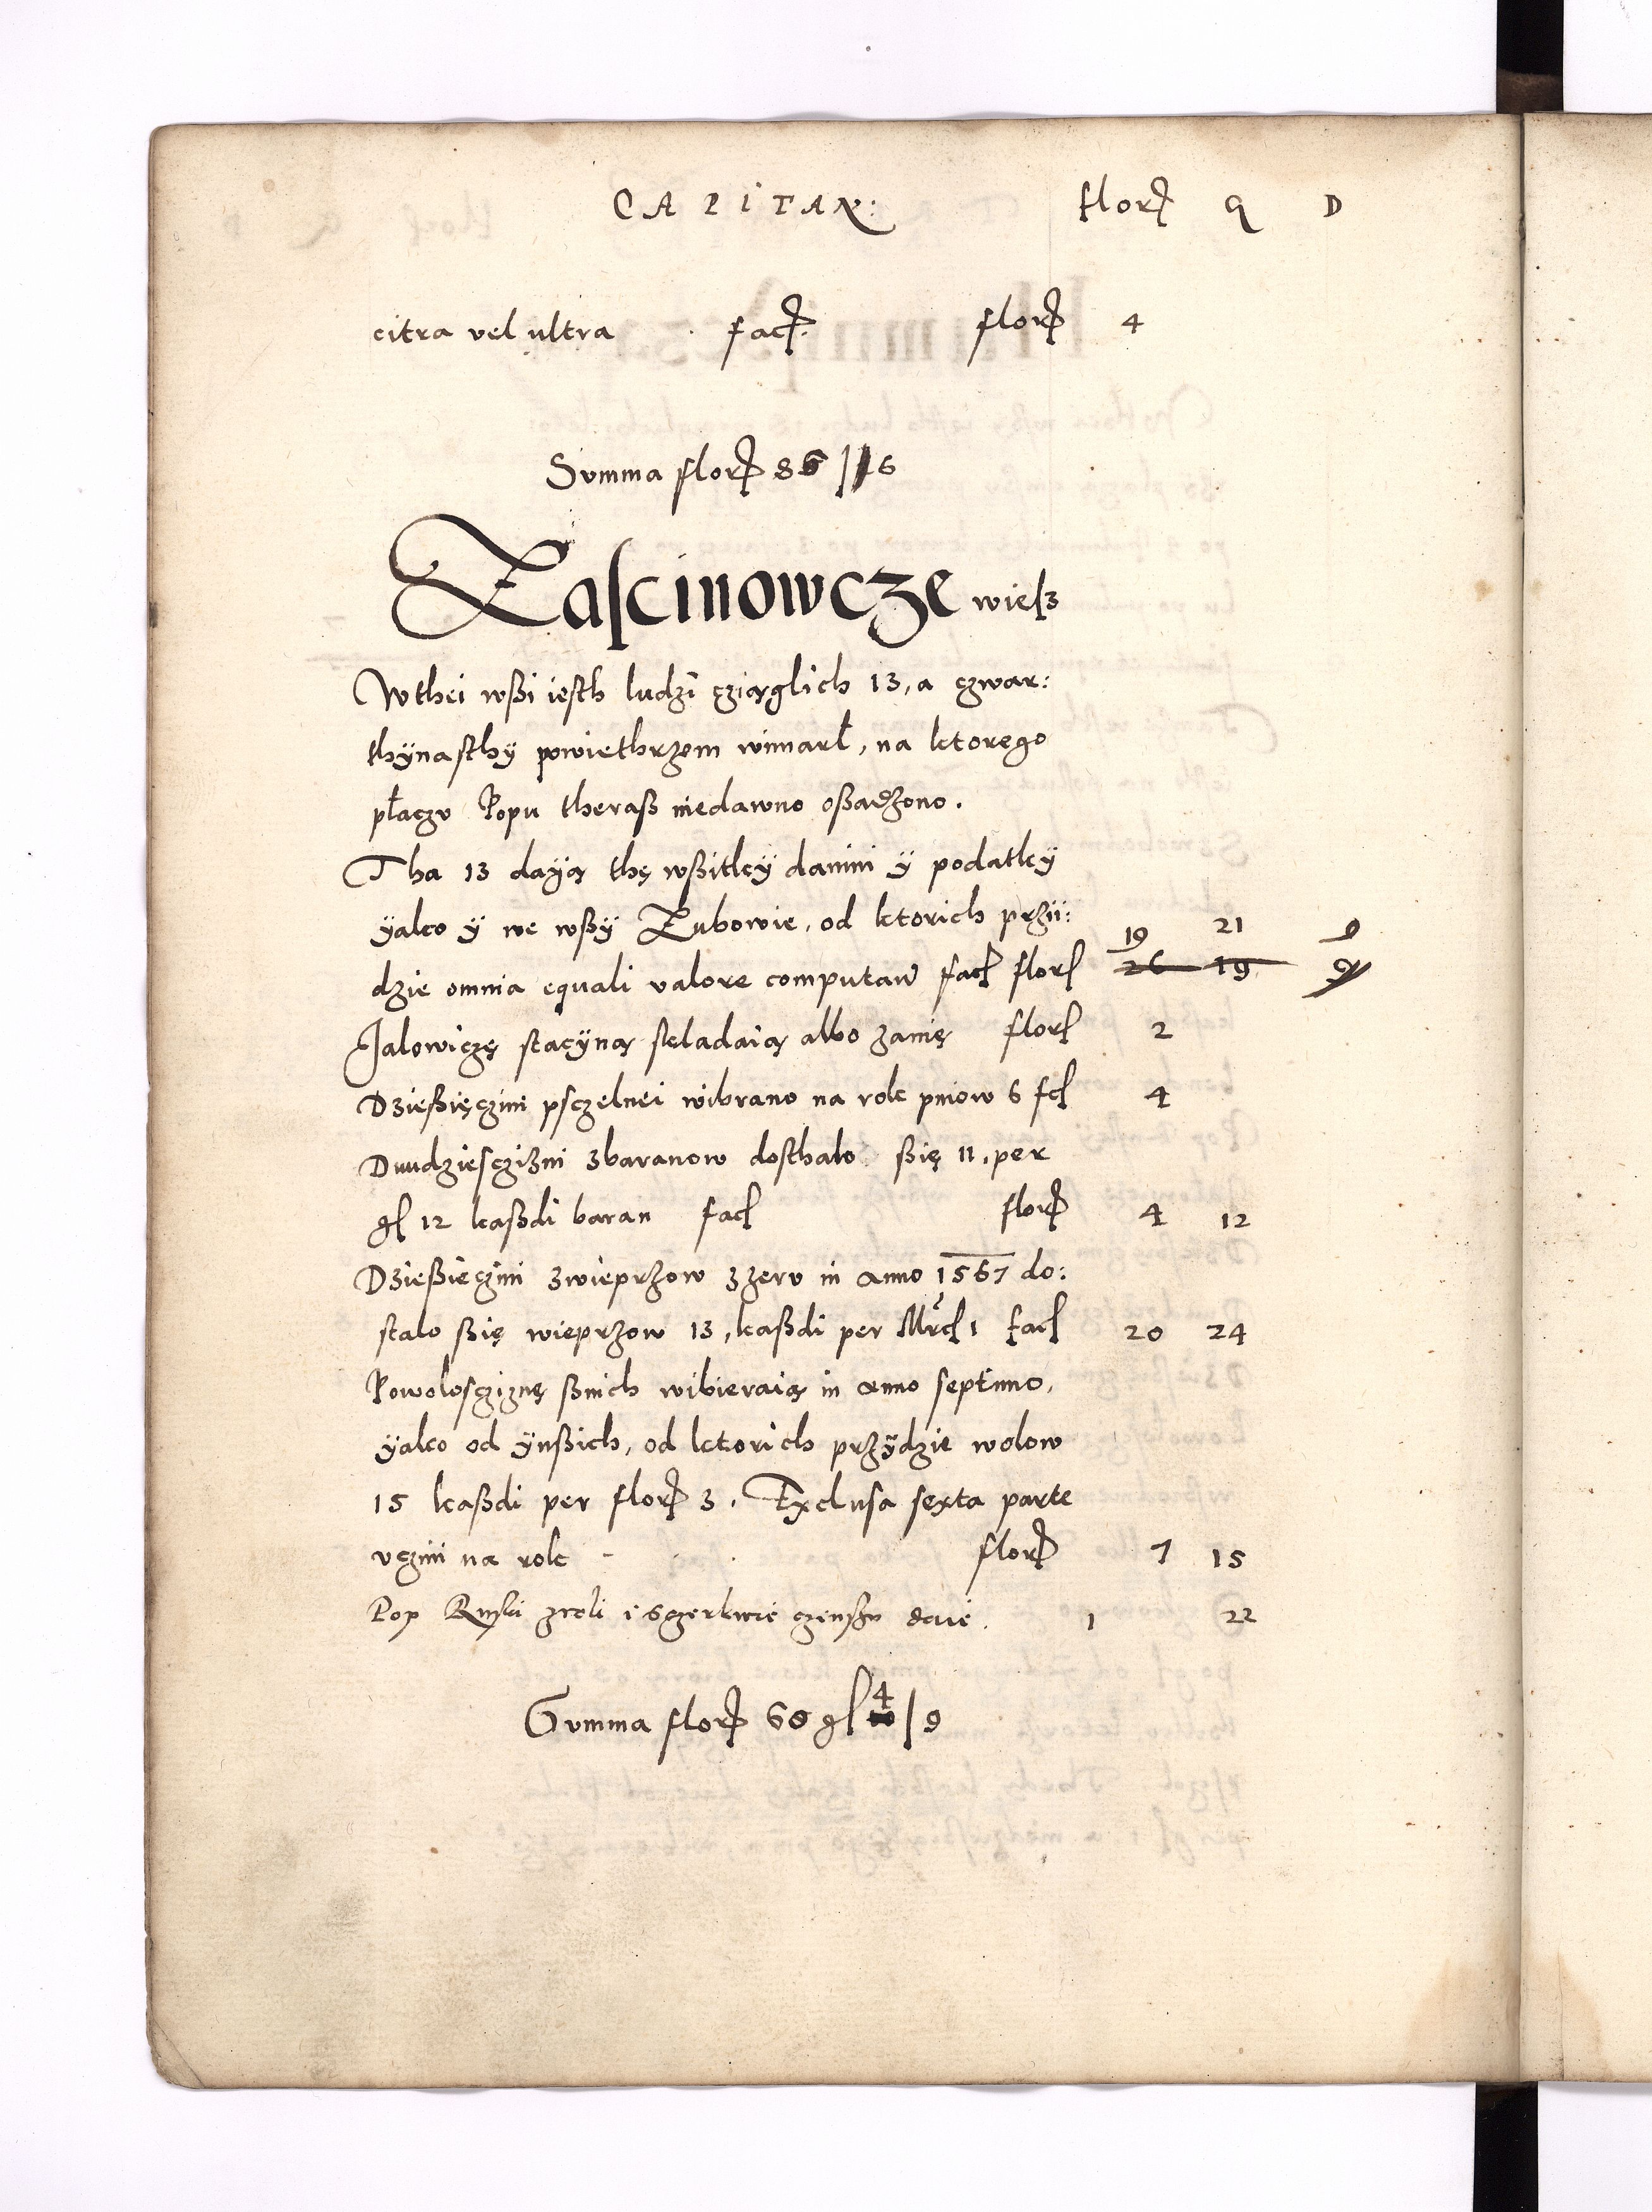 CAPITAN: flor q D
citra vel ultra fac. flor 4
Summa flor 86 / 6
Lascinowcze wiesz
W thei wßi iesth ludzi cziąglich 13, a czwar:
thÿnasthÿ powiethrzem wimarł, na ktorego
płaczu Popu theraß niedawno oßadzono.
Tha 13 daÿą thę wßitkÿ danini ÿ podatkÿ
ÿako ÿ we wßÿ Lubowie, od ktorich przÿ: 19 21 9
dzie omnia equali valore computan fac flor 26 19
Jalowiczę stacÿną skladaią albo zanię flor 2
Dzießięczini psczelnei wibrano na rok pniow 6 fc 4
Dwudziesczizni zbaranow dosthalo ßię 11, per
gl 12 kaßdi baran fac flor 4 12
Dzießięczini zwieprzow zzeru in anno 1567 do:
stalo ßię wieprzow 13, kaßdi per Mrc 1 fac 20 24
Powoloscziznę ßnich wibieraią in anno septimo,
ÿako od ÿnßich, od ktorich przÿdzie wolow
15 kaßdi per flor 3. Exclusa sexta parte
uczini na rok - flor 7 15
Pop Ruski zroli i sczerkwie czenßu daie. 1 22
Summa flor 60 gl 4 / 9